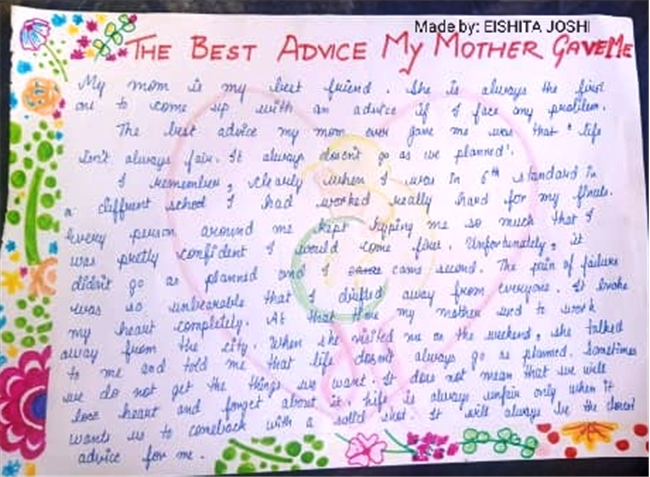 Made by: EISHITA JOSHI
THE BEST ADVICE MY MOTHER GAVE ME
My mom is my best friend. She is always the first
one to come up with an advice if I face any problem.
The best advice my mom ever gave me was that 'life
isn't always fair. It always doesn't go as we planned'.
I remember, clearly when I was in 6th standard in
a diffrent school I had worked really hard for my finals.
Every person around me kept hyping me so much that I
was pretty confident I would come first. Unfortunately, it
didn't go as planned and I came second. The pain of failure
was so unbearable that I drifted away from everyone. It broke
my heart completely. At that time my mother used to work
away from the city. When she visited me on the weekend, she talked
to me and told me that life doesn't always go as planned. Sometimes
we do not get the things we want. It does not mean that we will
lose heart and forget about it. Life is always unfair only when it
wants us to comeback with a solid shot. It will always be the
advice for me.